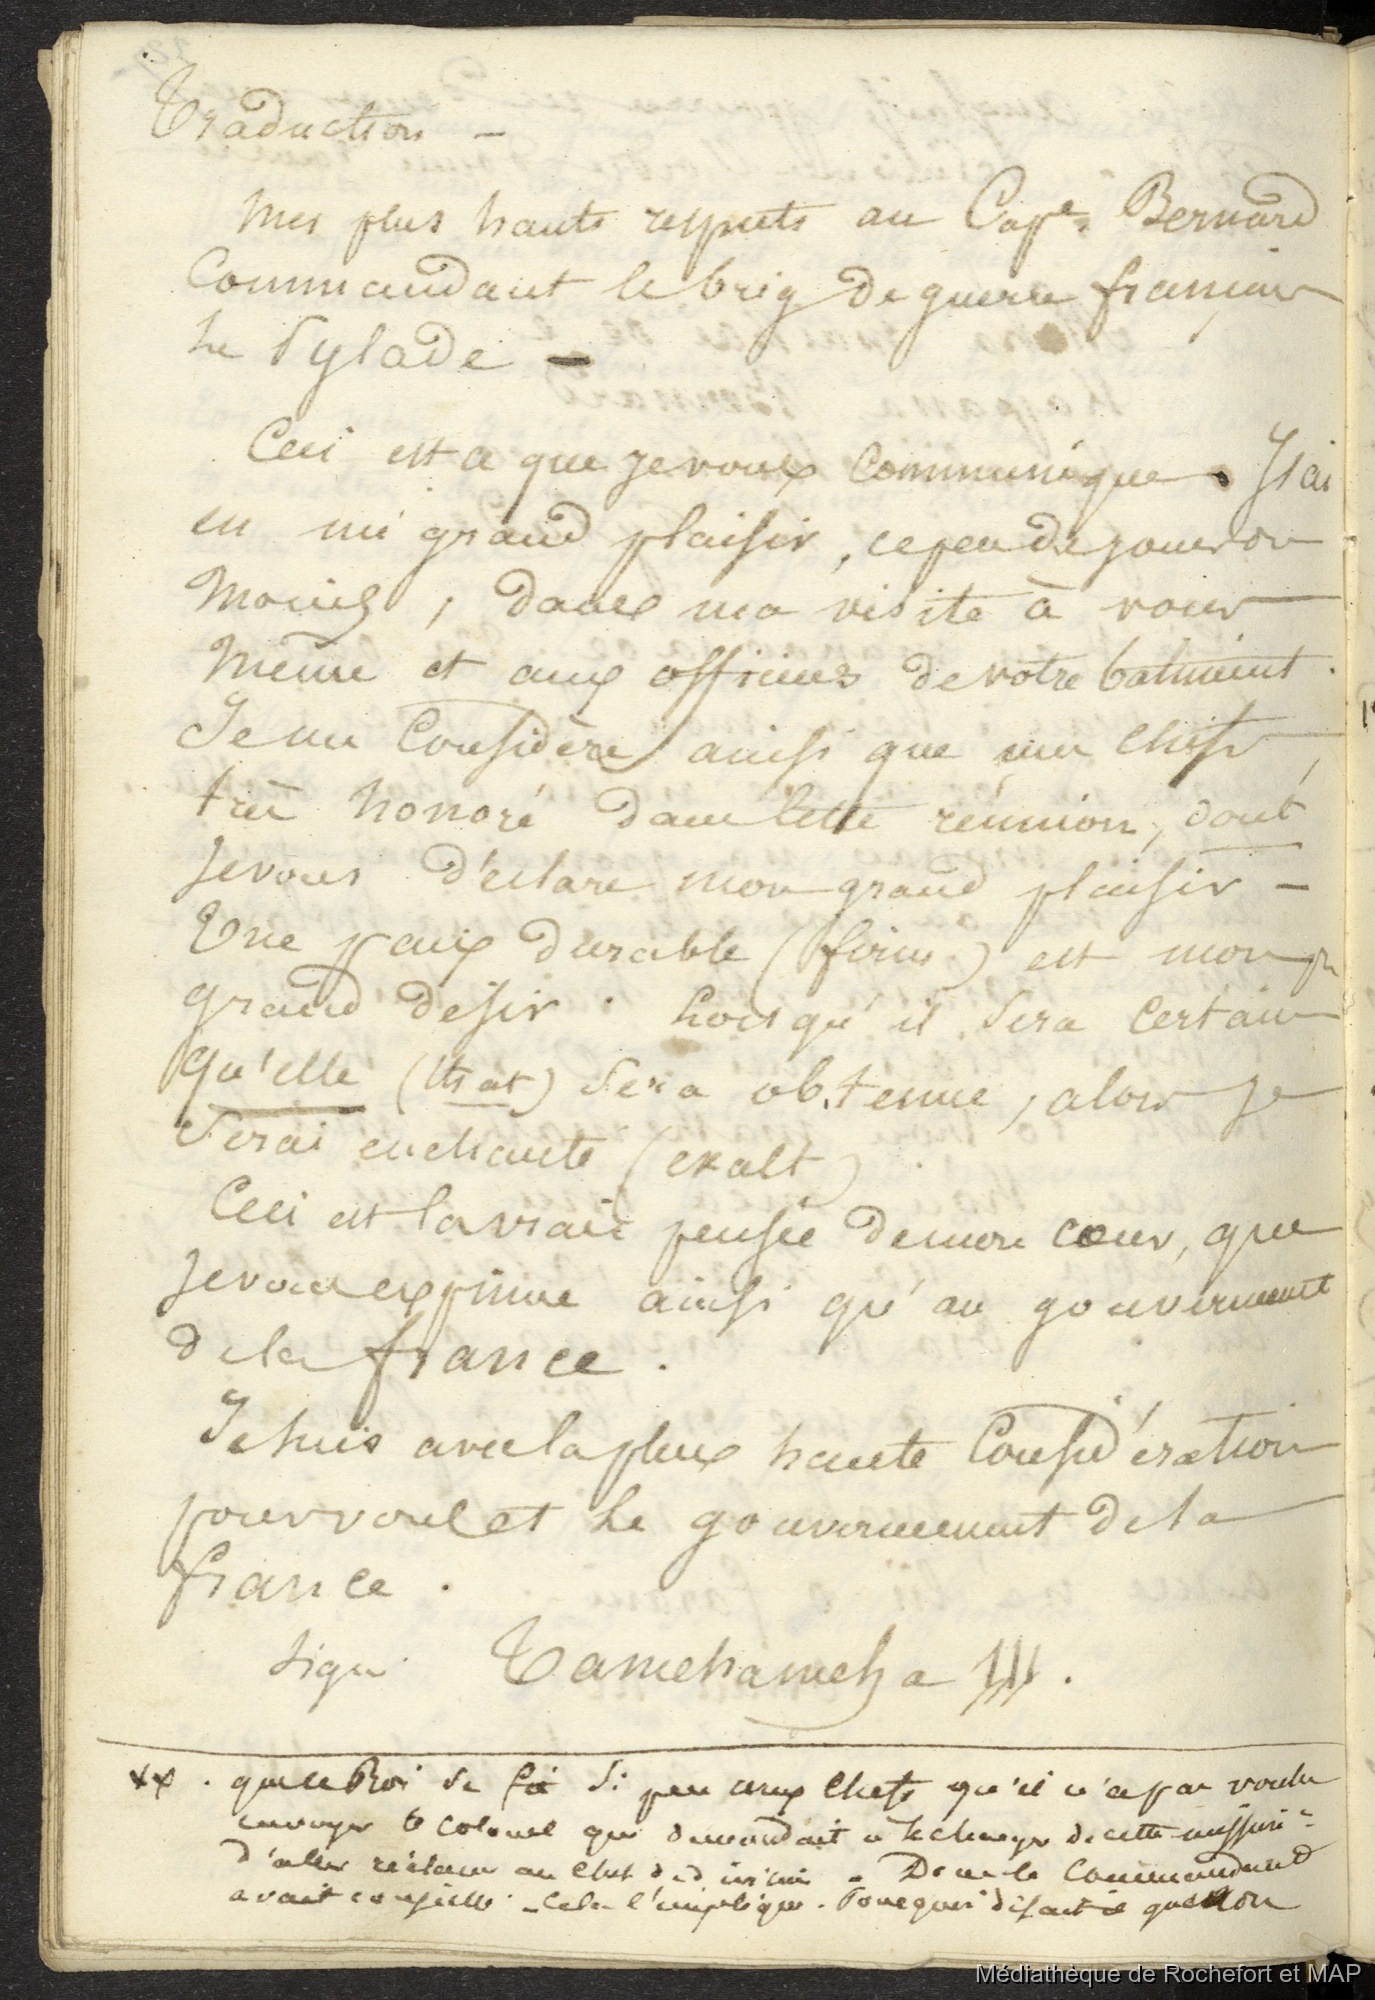 Traduction -
Mes plus hauts respects au Cap.e Bernard
Commandant le brig de guerre français
Le Pylade -
Ceci est ce que je vous communique. J'ai
eu un grand plaisir, ce peu de jours ou
mois, dans ma visite à vous
même et aux officiers de votre batiment.
Je me Considère ainsi que mes chefs,
très honoré dans cette réunion, dont
je vous déclare mon grand plaisir -
Une paix durable (firm) est mon
grand desir. Lorsqu'il sera certain
qu'elle (that) sera obtenue, alors je
serai enchanté (exalt).
Ceci est la vraie pensée de mon coeur, que
je vous exprime ainsi qu'au gouvernement
de la france.
Je suis avec la plus haute Considération
pour vous et le gouvernement de la
france.
Signé Tamehameha III.
xx. que le Roi se fie si peu aux chefs qu'il n'a pas voulu
envoyer le colonel qui demandait à se charger de cette mission
d'aller réclamer au Chef - De une le Commandant
avait - cela l'implique. Pourquoi disait-il que non
Médiathèque de Rochefort et MAP